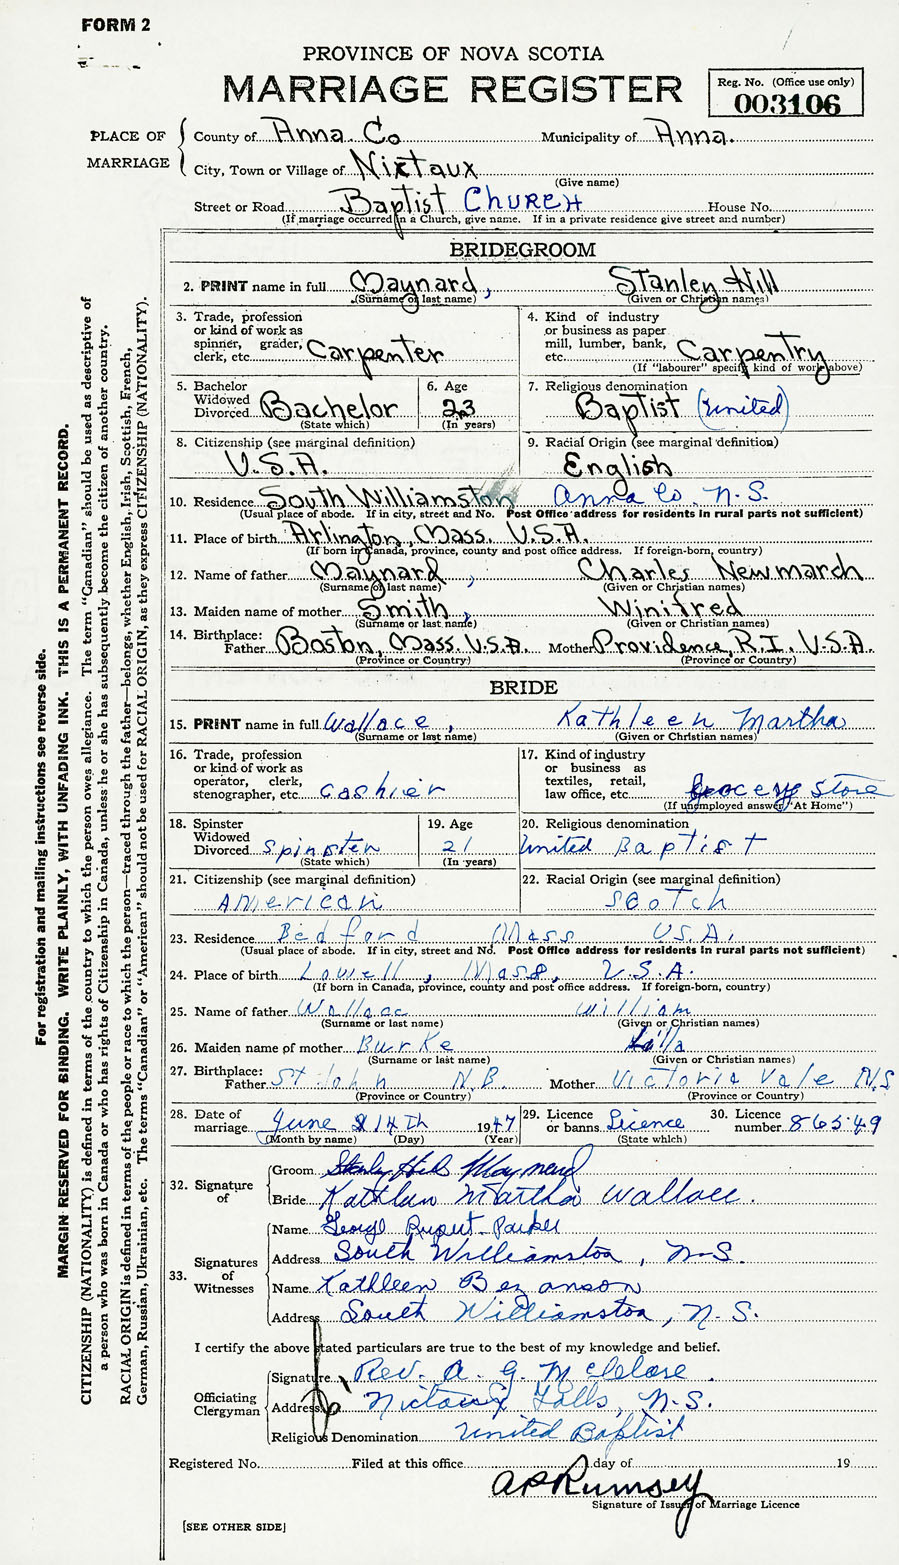 FORM 2
PROVINCE OF NOVA SCOTIA
MARRIAGE REGISTER
Reg. No. (Office use only)
003106
PLACE OF MARRIAGE
County of Anna Co Municipality of Anna.
City, Town or Village of Nictaux
(Give name)
Street or Road Baptist CHURCH House No.
(If marriage occurred in a Church, give name. If in a private residence give street and number)
BRIDEGROOM
2. PRINT name in full Maynard, Stanley Hill
(Surname or last name) (Given or Christian names)
3. Trade, profession or kind of work as spinner, grader, clerk, etc. Carpenter
4. Kind of industry or business as paper mill, lumber, bank, etc. Carpentry
(If "labourer" specify kind of work above)
5. Bachelor Widowed Divorced Bachelor
(State which)
6. Age 23
(In years)
7. Religious denomination Baptist (United)
8. Citizenship (see marginal definition) U.S.A.
9. Racial Origin (see marginal definition) English
10. Residence South Williamston Anna Co, N.S.
(Usual place of abode. If in city, street and No. Post Office address for residents in rural parts not sufficient)
11. Place of birth Arlington, Mass. U.S.A.
(If born in Canada, province, county and post office address. If foreign-born, country)
12. Name of father Maynard, Charles Newmarch
(Surname or last name) (Given or Christian names)
13. Maiden name of mother Smith, Winifred
(Surname or last name) (Given or Christian names)
14. Birthplace: Father Boston, Mass. U.S.A. Mother Providence, R.I. U.S.A.
(Province or Country) (Province or Country)
BRIDE
15. PRINT name in full Wallace, Kathleen Martha
(Surname or last name) (Given or Christian names)
16. Trade, profession or kind of work as operator, clerk, stenographer, etc. cashier
17. Kind of industry or business as textiles, retail, law office, etc. Grocery Store
(If unemployed answer "At Home")
18. Spinster Widowed Divorced Spinster
(State which)
19. Age 21
(In years)
20. Religious denomination United Baptist
21. Citizenship (see marginal definition) American
22. Racial Origin (see marginal definition) Scotch
23. Residence Bedford Mass U.S.A.
(Usual place of abode. If in city, street and No. Post Office address for residents in rural parts not sufficient)
24. Place of birth Lowell, Mass, U.S.A.
(If born in Canada, province, county and post office address. If foreign-born, country)
25. Name of father Wallace William
(Surname or last name) (Given or Christian names)
26. Maiden name of mother Burke
(Surname or last name) (Given or Christian names)
27. Birthplace: Father St John N.B. Mother Victoria Vale N.S
(Province or Country) (Province or Country)
28. Date of marriage June 14th 1947
(Month by name) (Day) (Year)
29. Licence or banns Licence
(State which)
30. Licence number 86549
32. Signature of
Groom Stanley Hill Maynard
Bride Kathleen Martha Wallace.
33. Signatures of Witnesses
Name George Rupert Parker
Address South Williamston, N.S.
Name Kathleen Bezanson
Address South Williamston, N.S.
I certify the above stated particulars are true to the best of my knowledge and belief.
Officiating Clergyman
Signature Rev. A. G.
Address Nictaux Falls, N.S.
Religious Denomination United Baptist
Registered No. Filed at this office day of 19
A P Rumsey
Signature of Issuer of Marriage Licence
[SEE OTHER SIDE]
For registration and mailing instructions see reverse side.
MARGIN RESERVED FOR BINDING. WRITE PLAINLY, WITH UNFADING INK. THIS IS A PERMANENT RECORD.
CITIZENSHIP (NATIONALITY) is defined in terms of the country to which the person owes allegiance. The term "Canadian" should be used as descriptive of
a person who was born in Canada or who has rights of Citizenship in Canada, unless he or she has subsequently become the citizen of another country.
RACIAL ORIGIN is defined in terms of the people or race to which the person—traced through the father—belongs, whether English, Irish, Scottish, French,
German, Russian, Ukrainian, etc. The terms "Canadian" or "American" should not be used for RACIAL ORIGIN, as they express CITIZENSHIP (NATIONALITY).